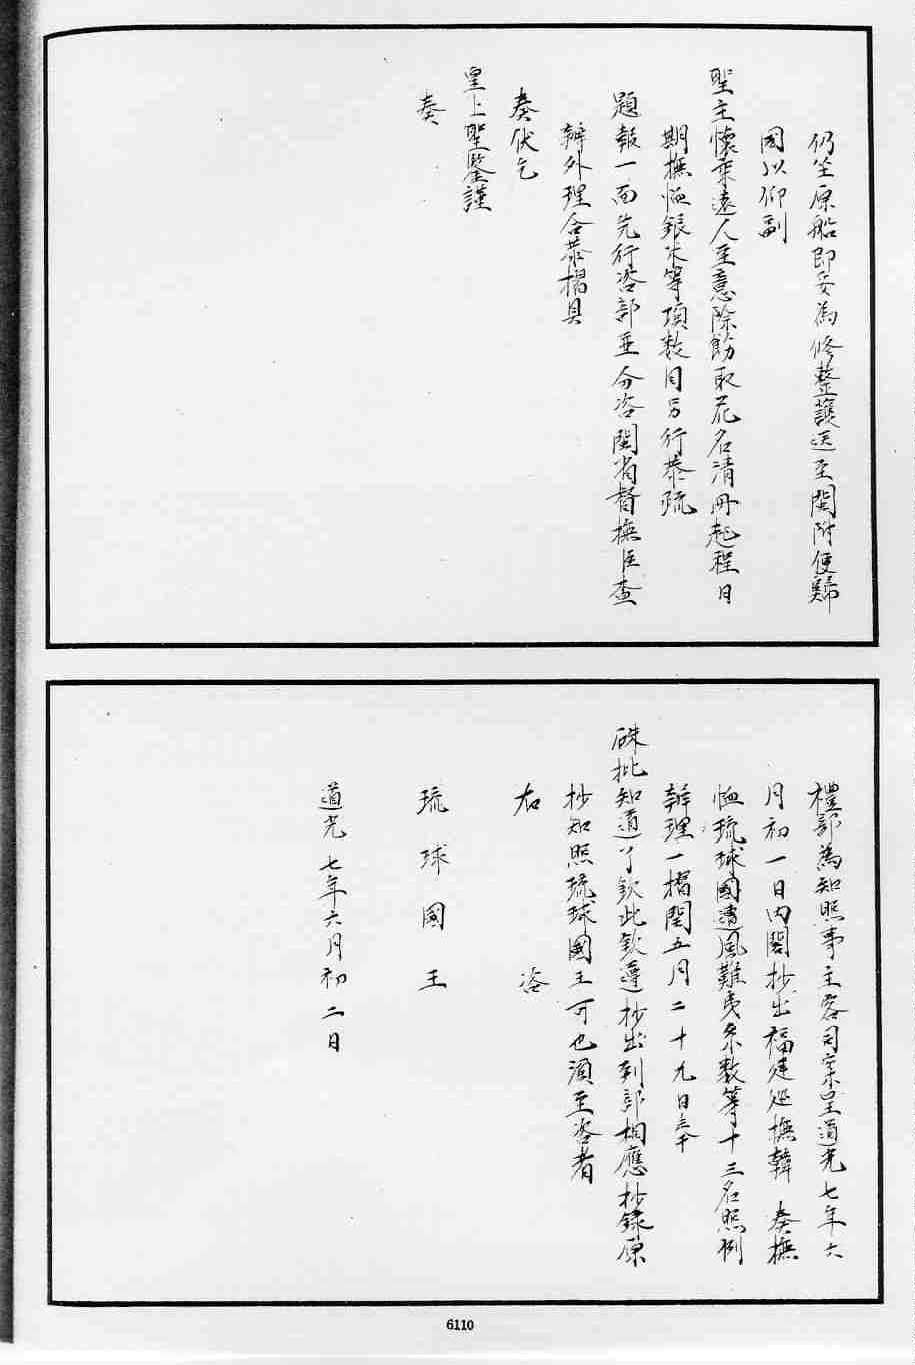 仍坐原船即妥為修整護送至閩附便歸
國以仰副
聖主懷柔遠人至意除飭取花名清冊起程日
期撫恤銀米等項数目另行恭疏
題報一面先行咨部並分咨閩省督撫臣查
辦外理合恭摺具
奏伏乞
皇上聖鑒謹
奏
禮部為知照事主客司案呈道光七年六
月初一日内閣抄出福建巡撫韓 奏撫
恤琉球國遭風難夷 数等十三名照例
辦理一摺閏五月二十九日奉
硃批知道了欽此欽遵抄出到部相應抄録原
抄知照琉球國王可也須至咨者
右 咨
琉球國王
道光七年六月初二日
6110